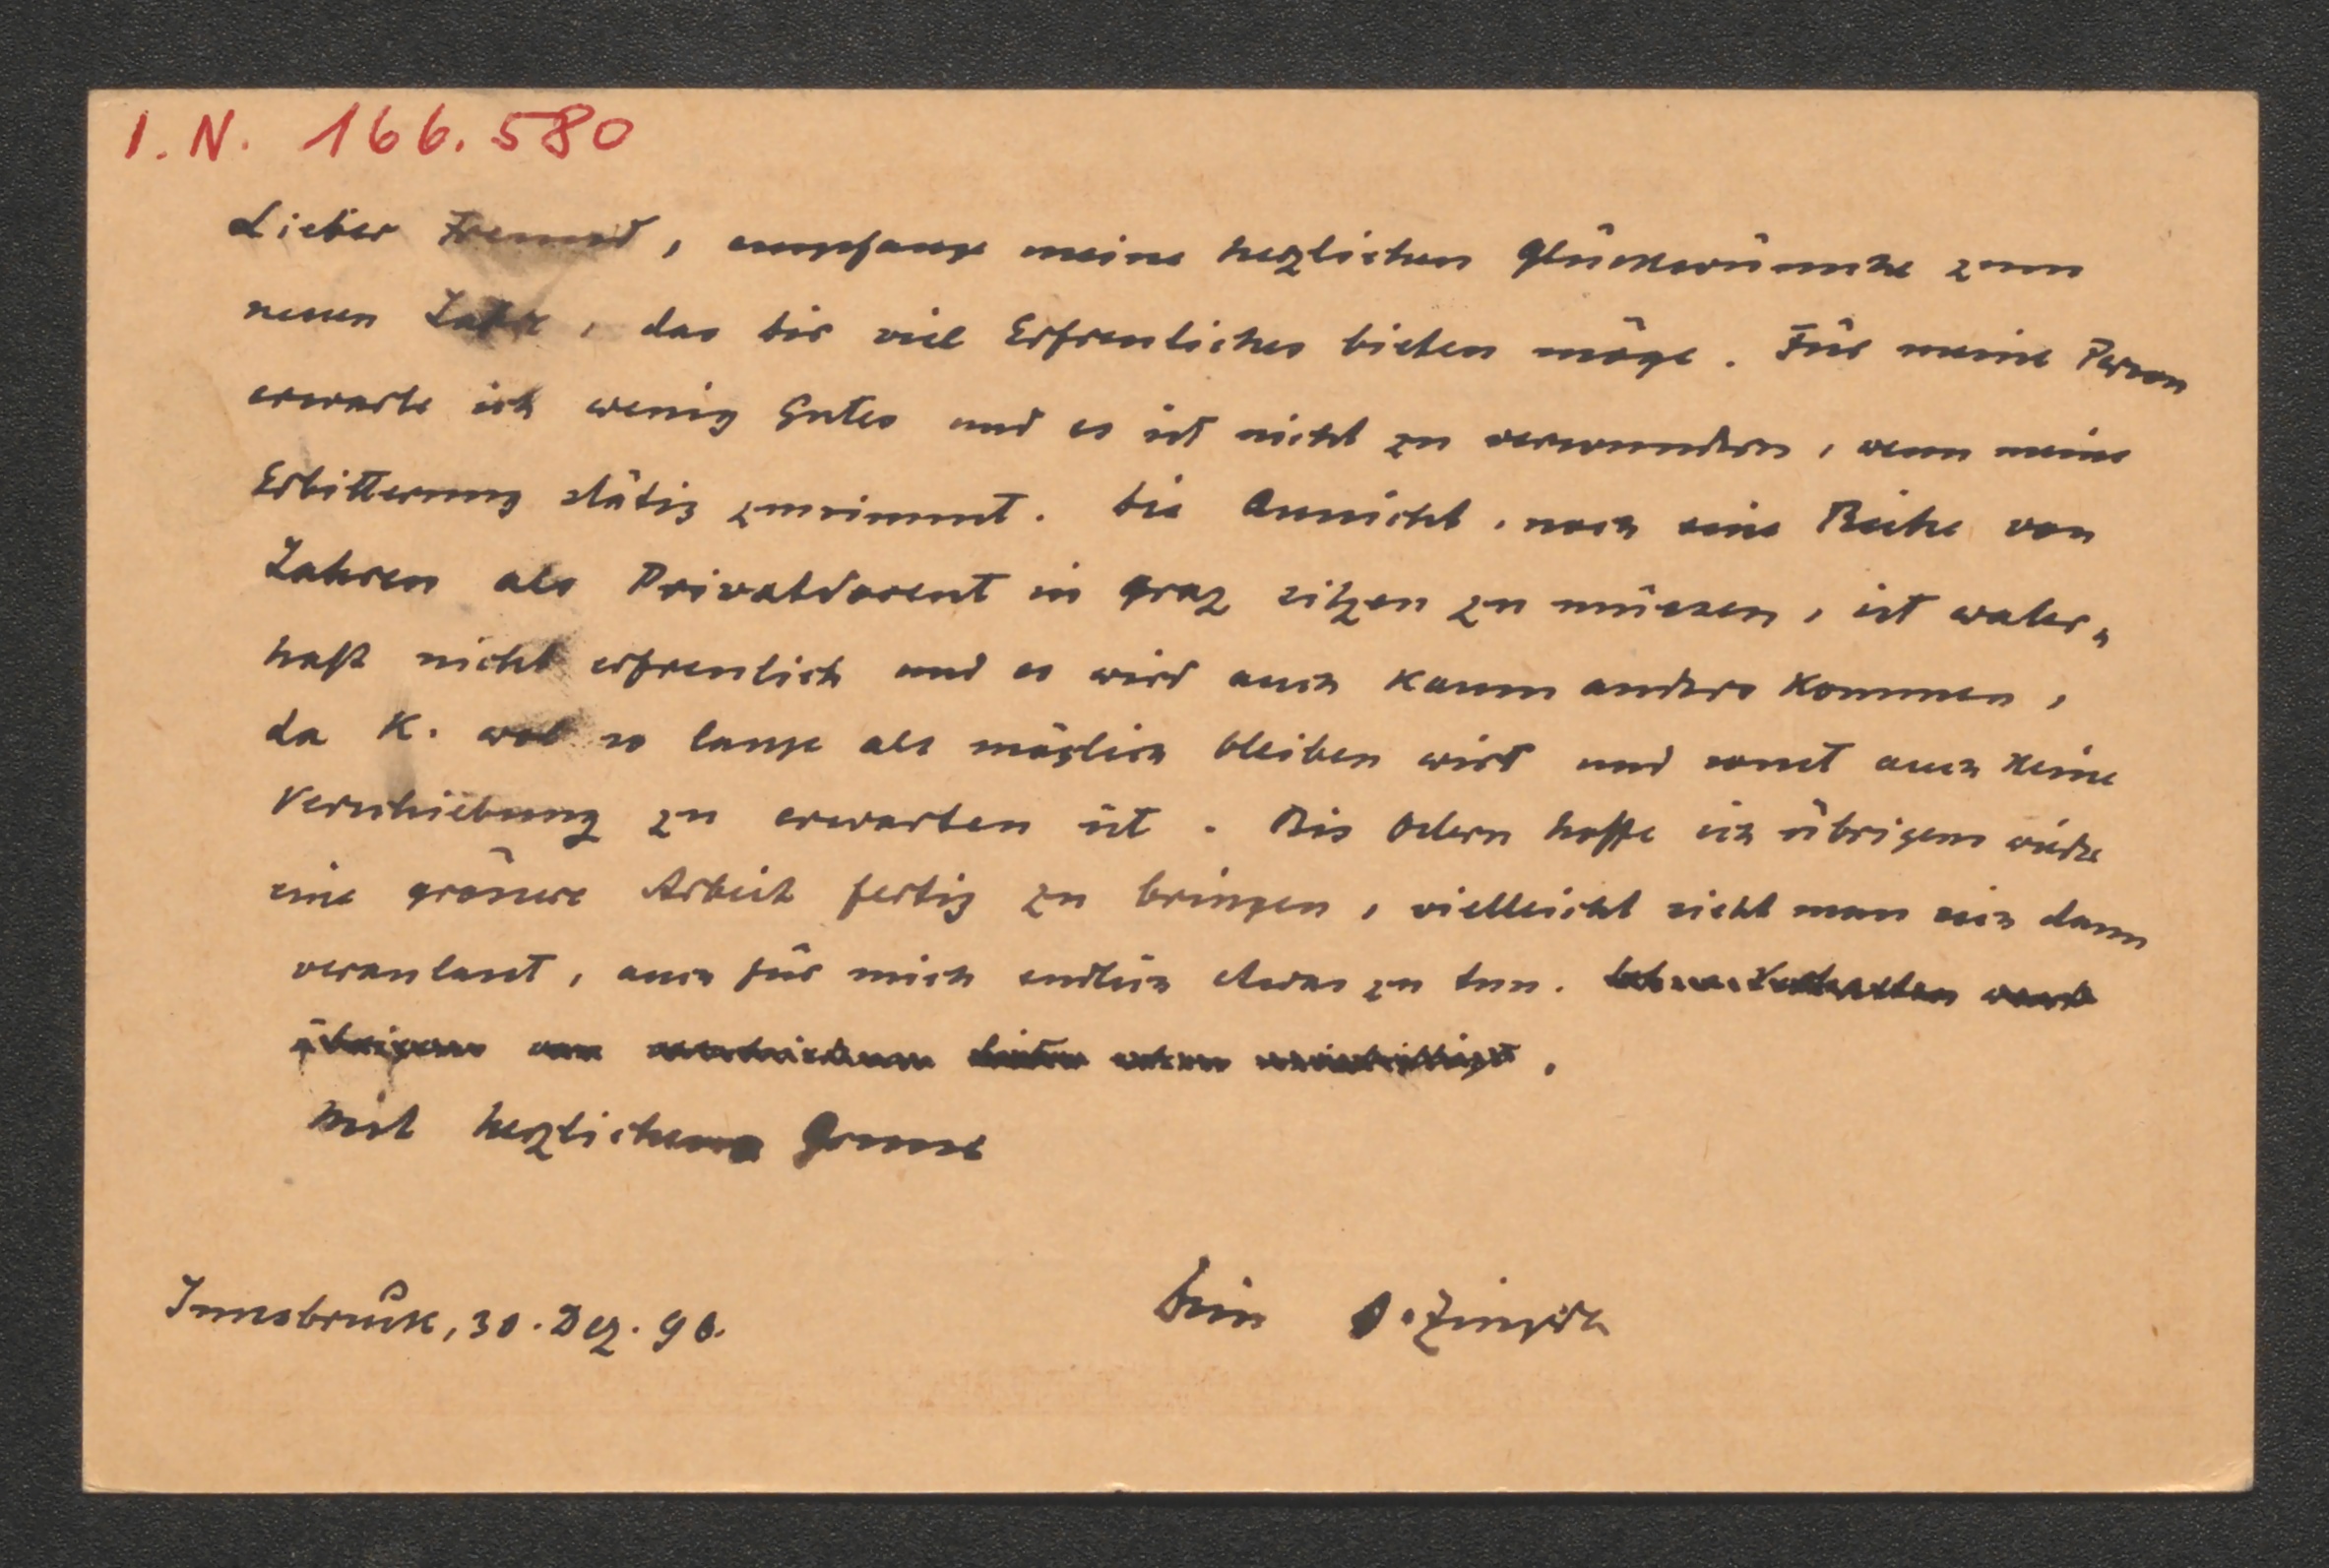 I. N. 166.580
Lieber Freund, empfange meine herzlichen Glückwünsche zum
neuen Jahr, das dir viel Erfreuliches bieten möge. Für meine Person
erwarte ich wenig Gutes und es ist nicht zu verwundern, wenn meine
Erbitterung stätig zunimmt. Die Aussicht, noch eine Reihe von
Jahren als Privatdocent in Graz sitzen zu müssen, ist wahr„
haft nicht erfreulich und es wird auch kaum anders kommen,
da K. wol so lange als möglich bleiben wird und somit auch keine
Verschiebung zu erwarten ist. Bis Ostern hoffe ich übrigens wieder
eine grössere Arbeit fertig zu bringen, vielleicht sieht man sich dann
veranlasst, auch für mich endlich etwas zu tun.
übrigens von
Mit herzlichem Grusse
Innsbruck, 30. Dez. 90.
Dein O. Zingerle